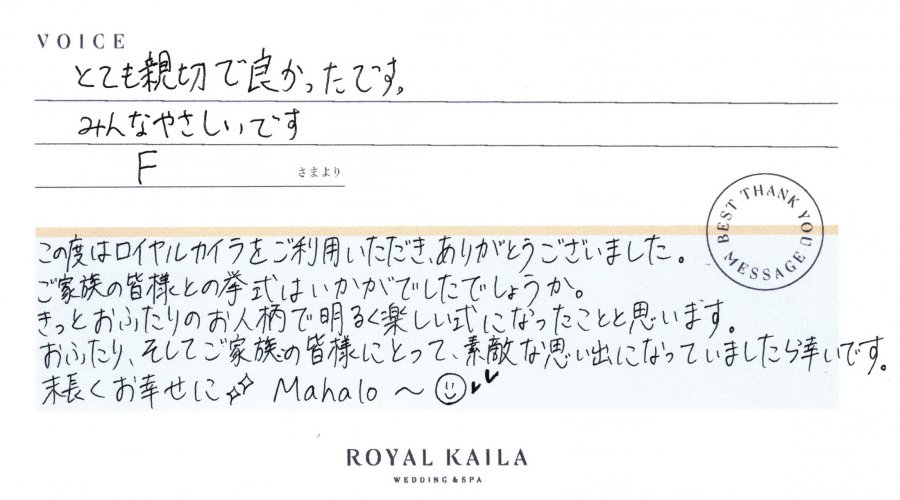 VOICE
とても親切で良かったです。
みんなやさしいです
F さまより
BEST THANK YOU MESSAGE
この度はロイヤルカイラをご利用いただき、ありがとうございました。
ご家族の皆様との挙式はいかがでしたでしょうか。
きっとおふたりのお人柄で明るく楽しい式になったことと思います。
おふたり、そしてご家族の皆様にとって、素敵な思い出になっていましたら幸いです。
末長くお幸せに✨ Mahalo ～ ☺
ROYAL KAILA
WEDDING & SPA